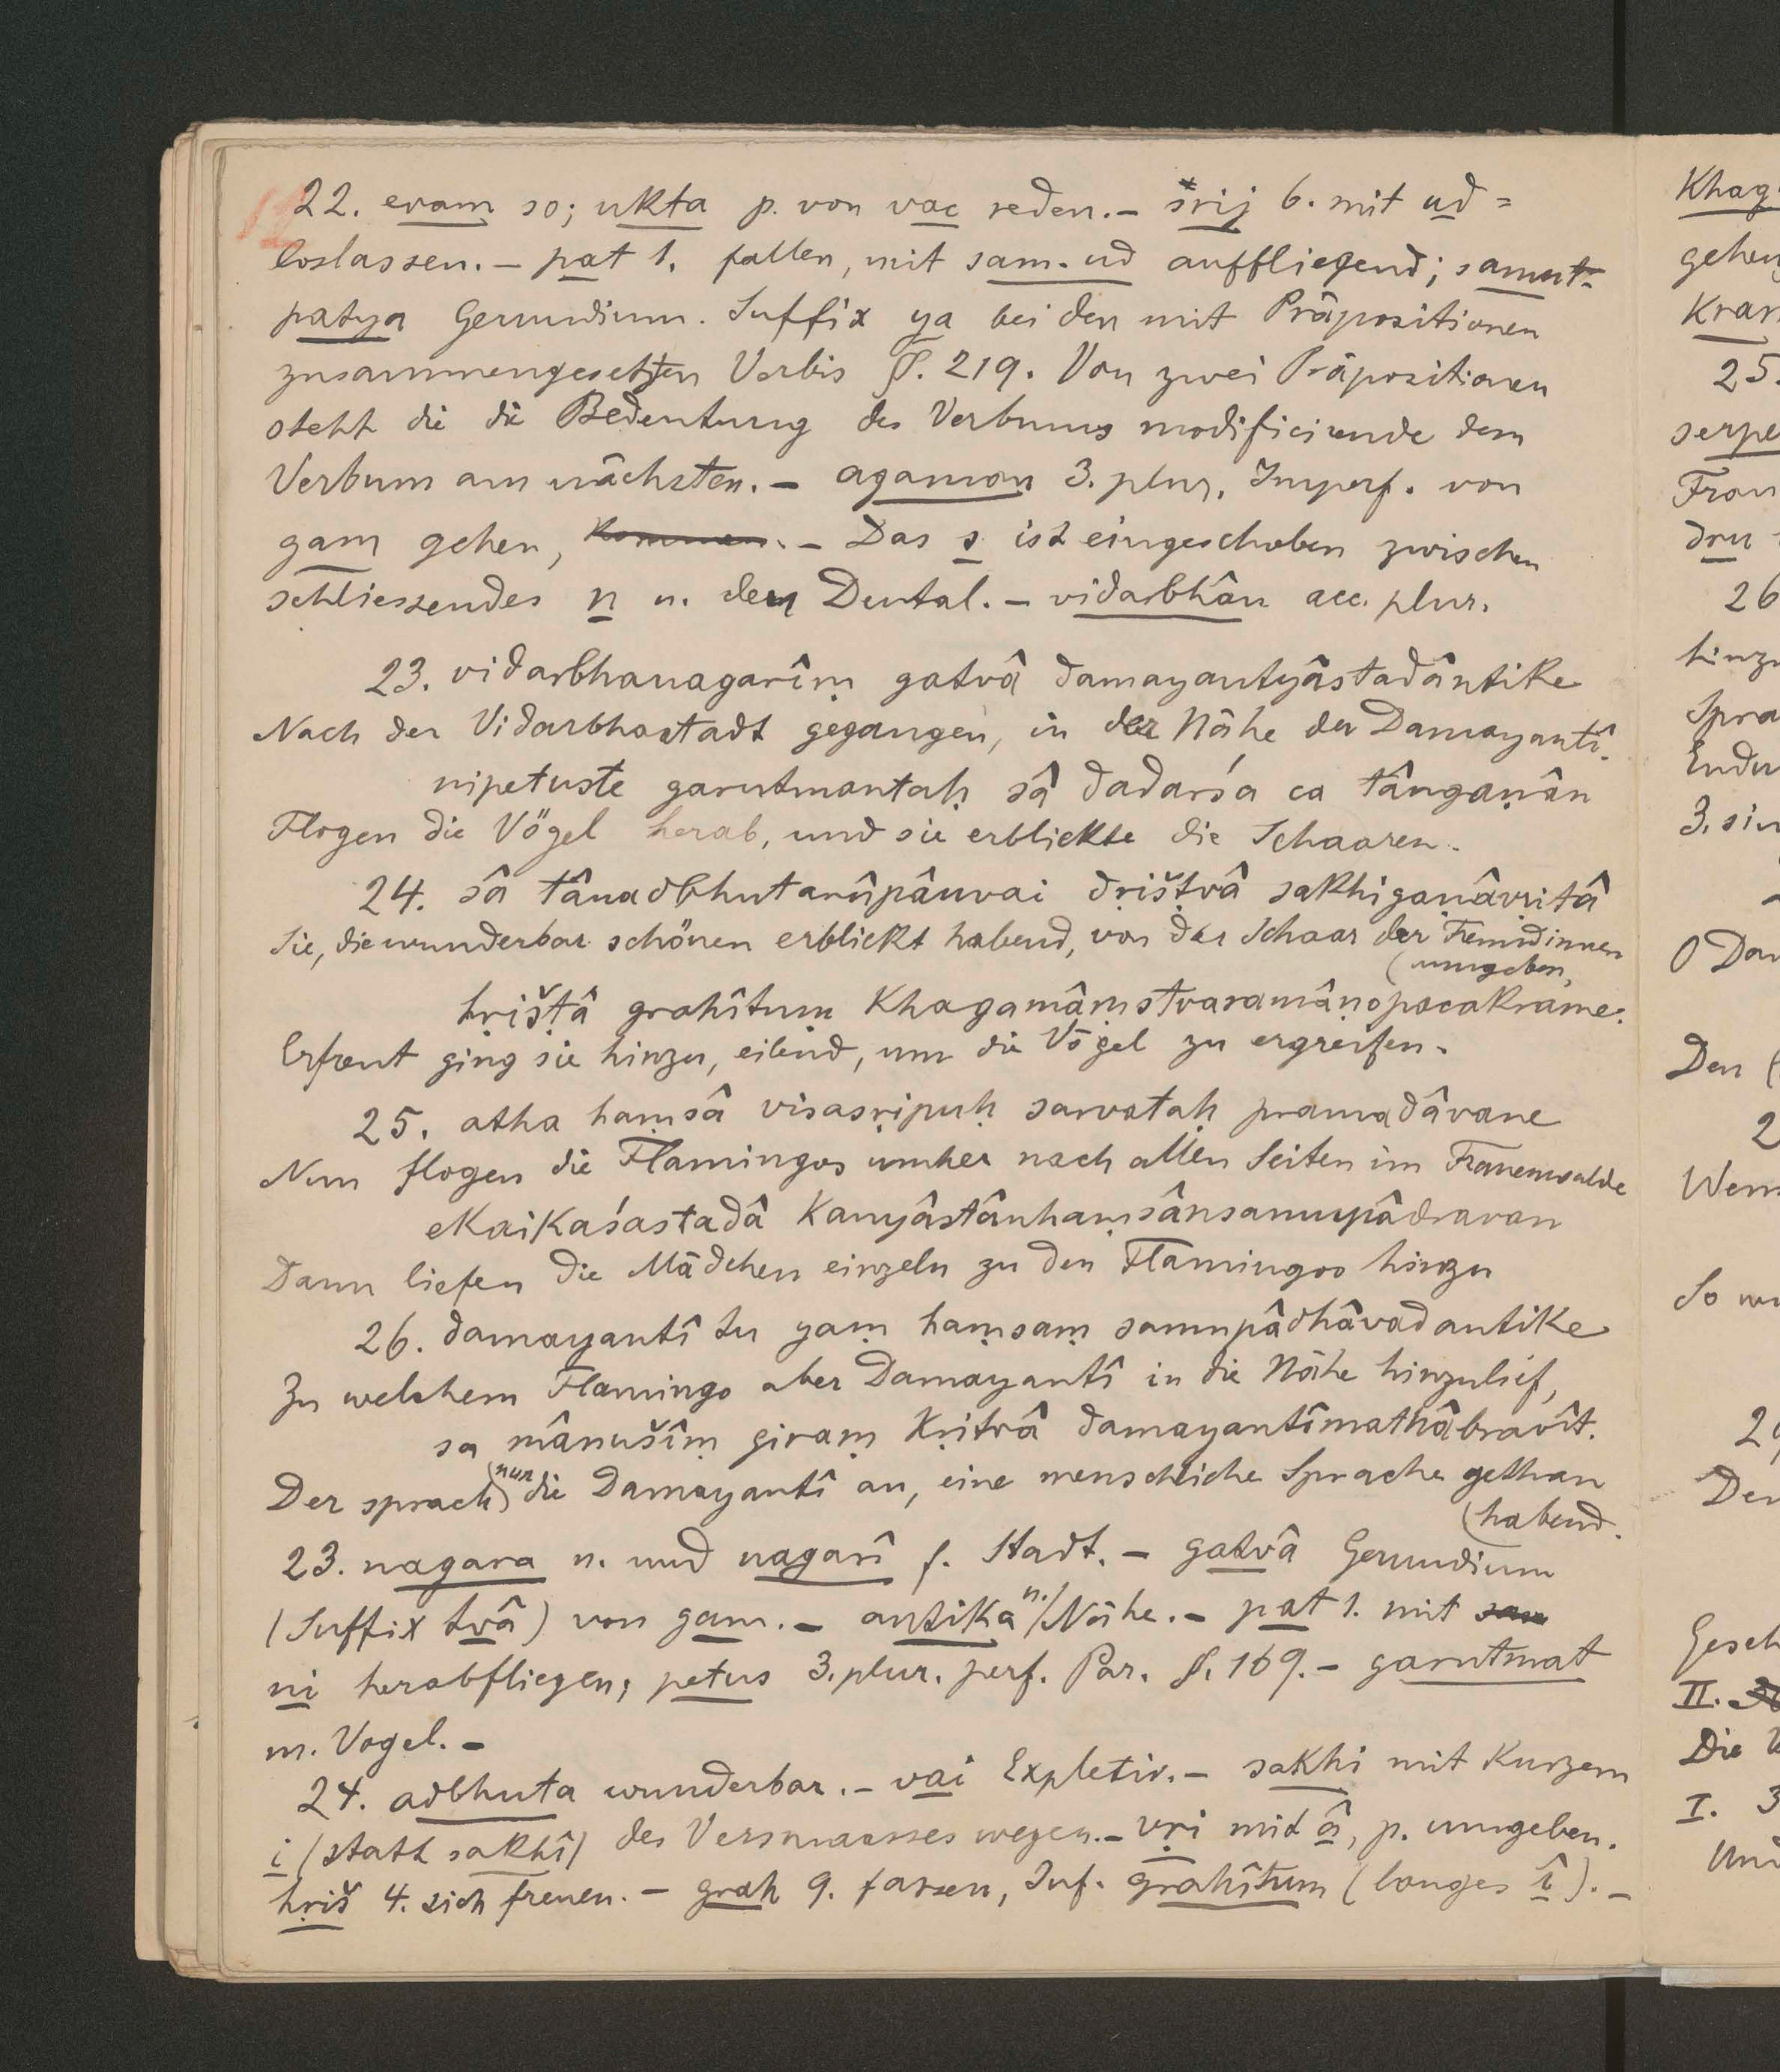 22. evam so; ukta p. von vac reden. – srij 6. mit ud =
loslassen. – pat 1. fallen, mit sam-ud auffliegend; samut-
patya Gerundium. Suffix ya bei den mit Präpositionen
zusammengesetzten Verbis §. 219. Von zwei Präpositionen
steht die die Bedeutung des Verbums modificirende dem
Verbum am nächsten. – agaman 3. plur. Imperf. von
gam gehen, kommen. – Das s ist eingeschoben zwischen
schliessendes n u. dem Dental. – vidarbhân acc. plur.
23. vidarbhanagarîṃ gatvâ damayantyâstadântike
Nach der Vidarbhastadt gegangen, in der Nähe der Damayantî.
nipetuste garutmantaḥ sâ dadarśa ca tângaṇân
Flogen die Vögel herab, und sie erblickte die Schaaren.
24. sâ tânadbhutarûpânvai dṛišṭvâ sakhigaṇâvṛitâ
Sie, die wunderbar schönen erblickt habend, von der Schaar der Freundinnen
(umgeben,
hṛišṭâ grahîtuṃ khagamâṃstvaramâṇopacakrame.
Erfreut ging sie hinzu, eilend, um die Vögel zu ergreifen.
25. atha haṃsâ visasṛipuḥ sarvataḥ pramadâvane
Nun flogen die Flamingos umher nach allen Seiten im Frauenwalde
ekaikaśastadâ kanyâstânhaṃsânsamupâdravan
Dann liefen die Mädchen einzeln zu den Flamingos hinzu
26. damayantî tu yaṃ haṃsaṃ samupâdhâvadantike
Zu welchem Flamingo aber Damayantî in die Nähe hinzulief,
sa mânušîṃ giraṃ kṛitvâ damayantîmathâbravît.
Der sprach nun die Damayantî an, eine menschliche Sprache gethan
(habend.
23. nagara n. und nagarî f. Stadt. – gatvâ Gerundium
(Suffix tvâ) von gam. – antika n. Nähe. – pat 1. mit sam
ni herabfliegen; petus 3. plur. perf. Par. §. 169. – garutmat
m. Vogel. –
24. adbhuta wunderbar. – vai Expletiv. – sakhi mit kurzem
i (statt sakhî) des Versmaasses wegen. – vṛi mit â, p. umgeben.
hṛiš 4. sich freuen. – grah 9. fassen, Inf. grahîtum (langes î). –
Khag
gehen
kram
25.
serpe
Frau
dru
26
hinzu
Spra
Endu
3. sin
O Dam
Den (
2
Wenn
So wü
Den
Gesch
II.
Die V
I. 3
Und